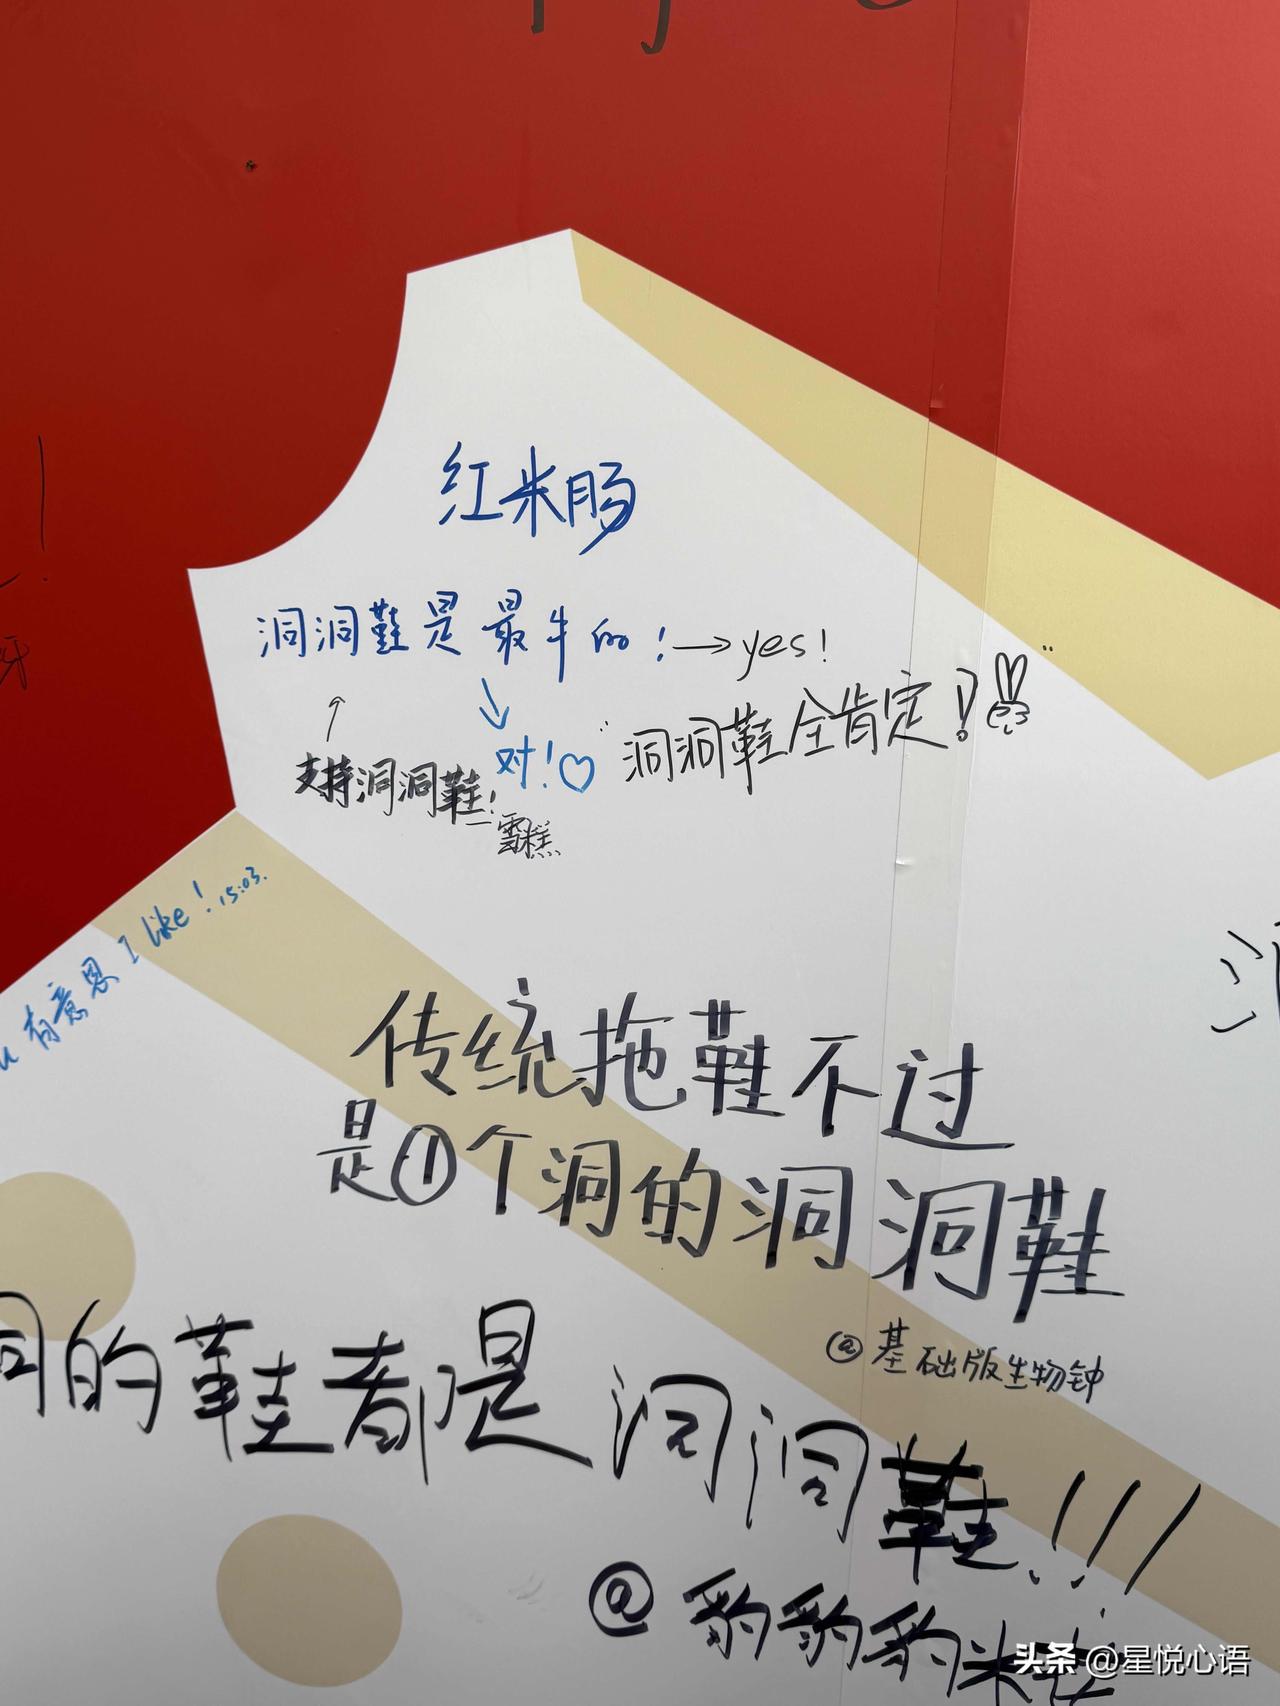 红米肠
洞洞鞋是最牛的!→yes!
↑
↓
对!♡
洞洞鞋全肯定!
支持洞洞鞋!
雪糕
有意思 I like! 15:03.
传统拖鞋不过
是①个洞的洞洞鞋
@基础版生物钟
洞的鞋都是洞洞鞋!!!
@豹豹豹米
头条 @星悦心语